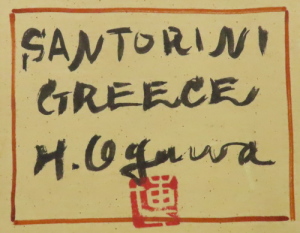 SANTORINI
GREECE
H. Ogawa
博